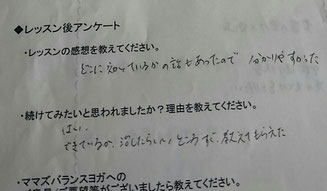 ◆レッスン後アンケート
・レッスンの感想を教えてください。
どこに効いているかの話もあったので 分かりやすかった
・続けてみたいと思われましたか？理由を教えてください。
はい。
できているの、治したらいいところまで、教えてもらえた
・ママズバランスヨガへの
ございましたら教えてください。